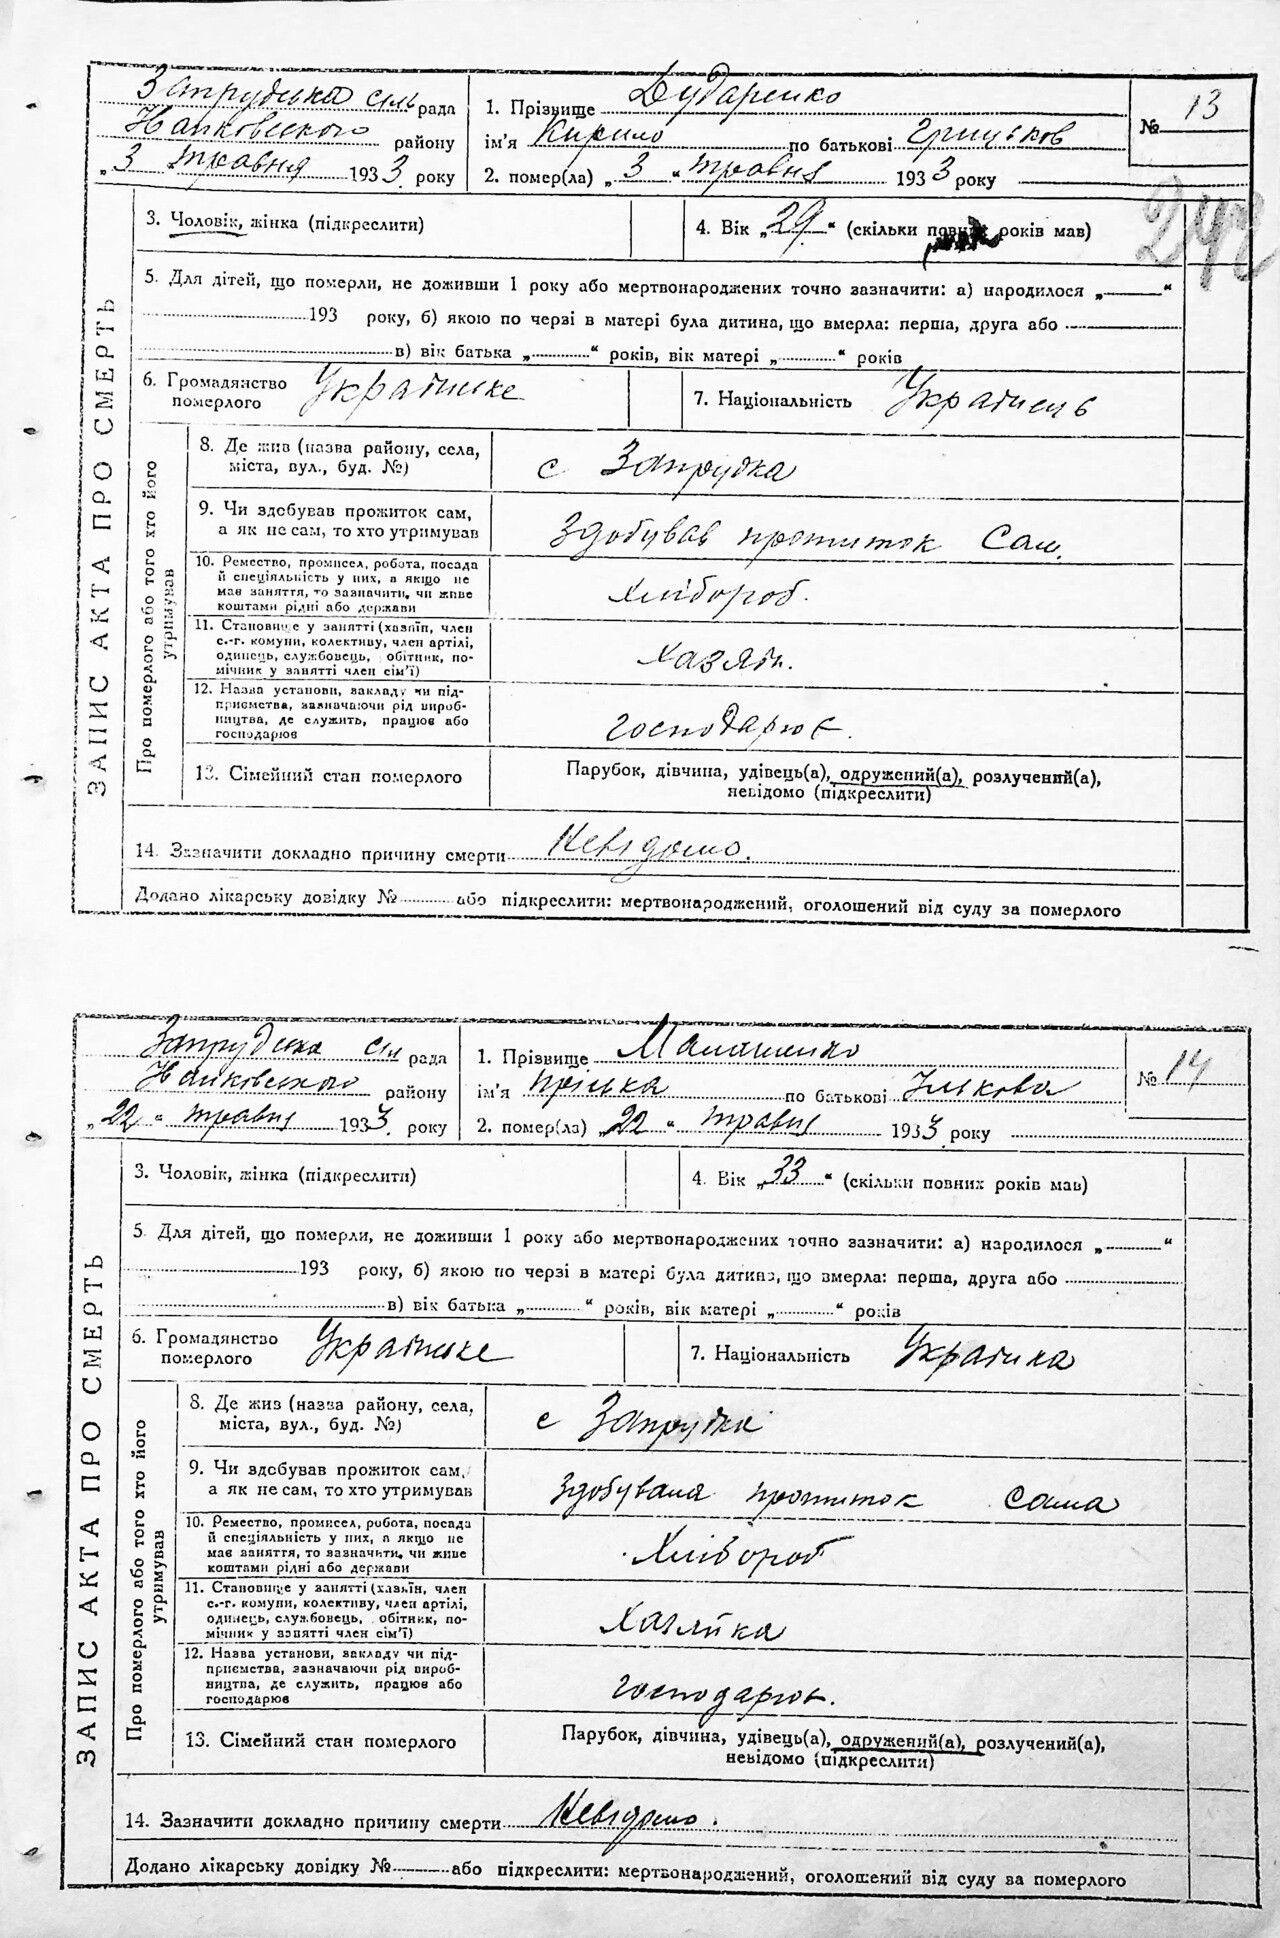 Запрудська сіль рада
Напковського району
„ 3 травня 1933 року
1. Прізвище Дударенко
ім'я Кирило по батькові Грицьков
2. помер(ла) „ 3 “ травня 1933 року
№ 13
242
ЗАПИС АКТА ПРО СМЕРТЬ
3. Чоловік, жінка (підкреслити)
4. Вік „ 29 “ (скільки повних років мав)
5. Для дітей, що померли, не доживши 1 року або мертвонароджених точно зазначити: а) народилося „ “
193 року, б) якою по черзі в матері була дитина, що вмерла: перша, друга або
в) вік батька „ “ років, вік матері „ “ років
6. Громадянство
померлого
Українське
7. Національність Українець
Про померлого або того хто його
утримував
8. Де жив (назва району, села,
міста, вул., буд. №)
с Запрудка
9. Чи здобував прожиток сам,
а як не сам, то хто утримував
Здобував прожиток Сам.
10. Ремество, промисел, робота, посада
й спеціяльність у них, а якщо не
мав заняття, то зазначити, чи живе
коштами рідні або держави
Хлібороб.
11. Становище у занятті (хазяїн, член
с.-г. комуни, колективу, член артілі,
одинець, службовець, обітник, по-
мічник у занятті член сім'ї)
Хазяїн.
12. Назва установи, закладу чи під-
приємства, зазначаючи рід вироб-
ництва, де служить, працює або
господарює
господарює.
13. Сімейний стан померлого
Парубок, дівчина, удівець(а), одружений(а), розлучений(а),
невідомо (підкреслити)
14. Зазначити докладно причину смерти Невідомо.
Додано лікарську довідку № або підкреслити: мертвонароджений, оголошений від суду за померлого
Запрудська сіл рада
Напковського району
„ 22 “ травня 1933 року
1. Прізвище Малашенко
ім'я Пріська по батькові Ількова
2. помер(ла) „ 22 “ травня 1933 року
№ 14
ЗАПИС АКТА ПРО СМЕРТЬ
3. Чоловік, жінка (підкреслити)
4. Вік „ 33 “ (скільки повних років мав)
5. Для дітей, що померли, не доживши 1 року або мертвонароджених точно зазначити: а) народилося „ “
193 року, б) якою по черзі в матері була дитина, що вмерла: перша, друга або
в) вік батька „ “ років, вік матері „ “ років
6. Громадянство
померлого
Українське
7. Національність Українка
Про померлого або того хто його
утримував
8. Де жив (назва району, села,
міста, вул., буд. №)
с Запрудка
9. Чи здобував прожиток сам,
а як не сам, то хто утримував
Здобувала прожиток сама
10. Ремество, промисел, робота, посада
й спеціяльність у них, а якщо не
мав заняття, то зазначити, чи живе
коштами рідні або держави
Хлібороб
11. Становище у занятті (хазяїн, член
с.-г. комуни, колективу, член артілі,
одинець, службовець, обітник, по-
мічник у занятті член сім'ї)
Хазяйка
12. Назва установи, закладу чи під-
приємства, зазначаючи рід вироб-
ництва, де служить, працює або
господарює
господарює.
13. Сімейний стан померлого
Парубок, дівчина, удівець(а), одружений(а), розлучений(а),
невідомо (підкреслити)
14. Зазначити докладно причину смерти Невідомо.
Додано лікарську довідку № або підкреслити: мертвонароджений, оголошений від суду за померлого